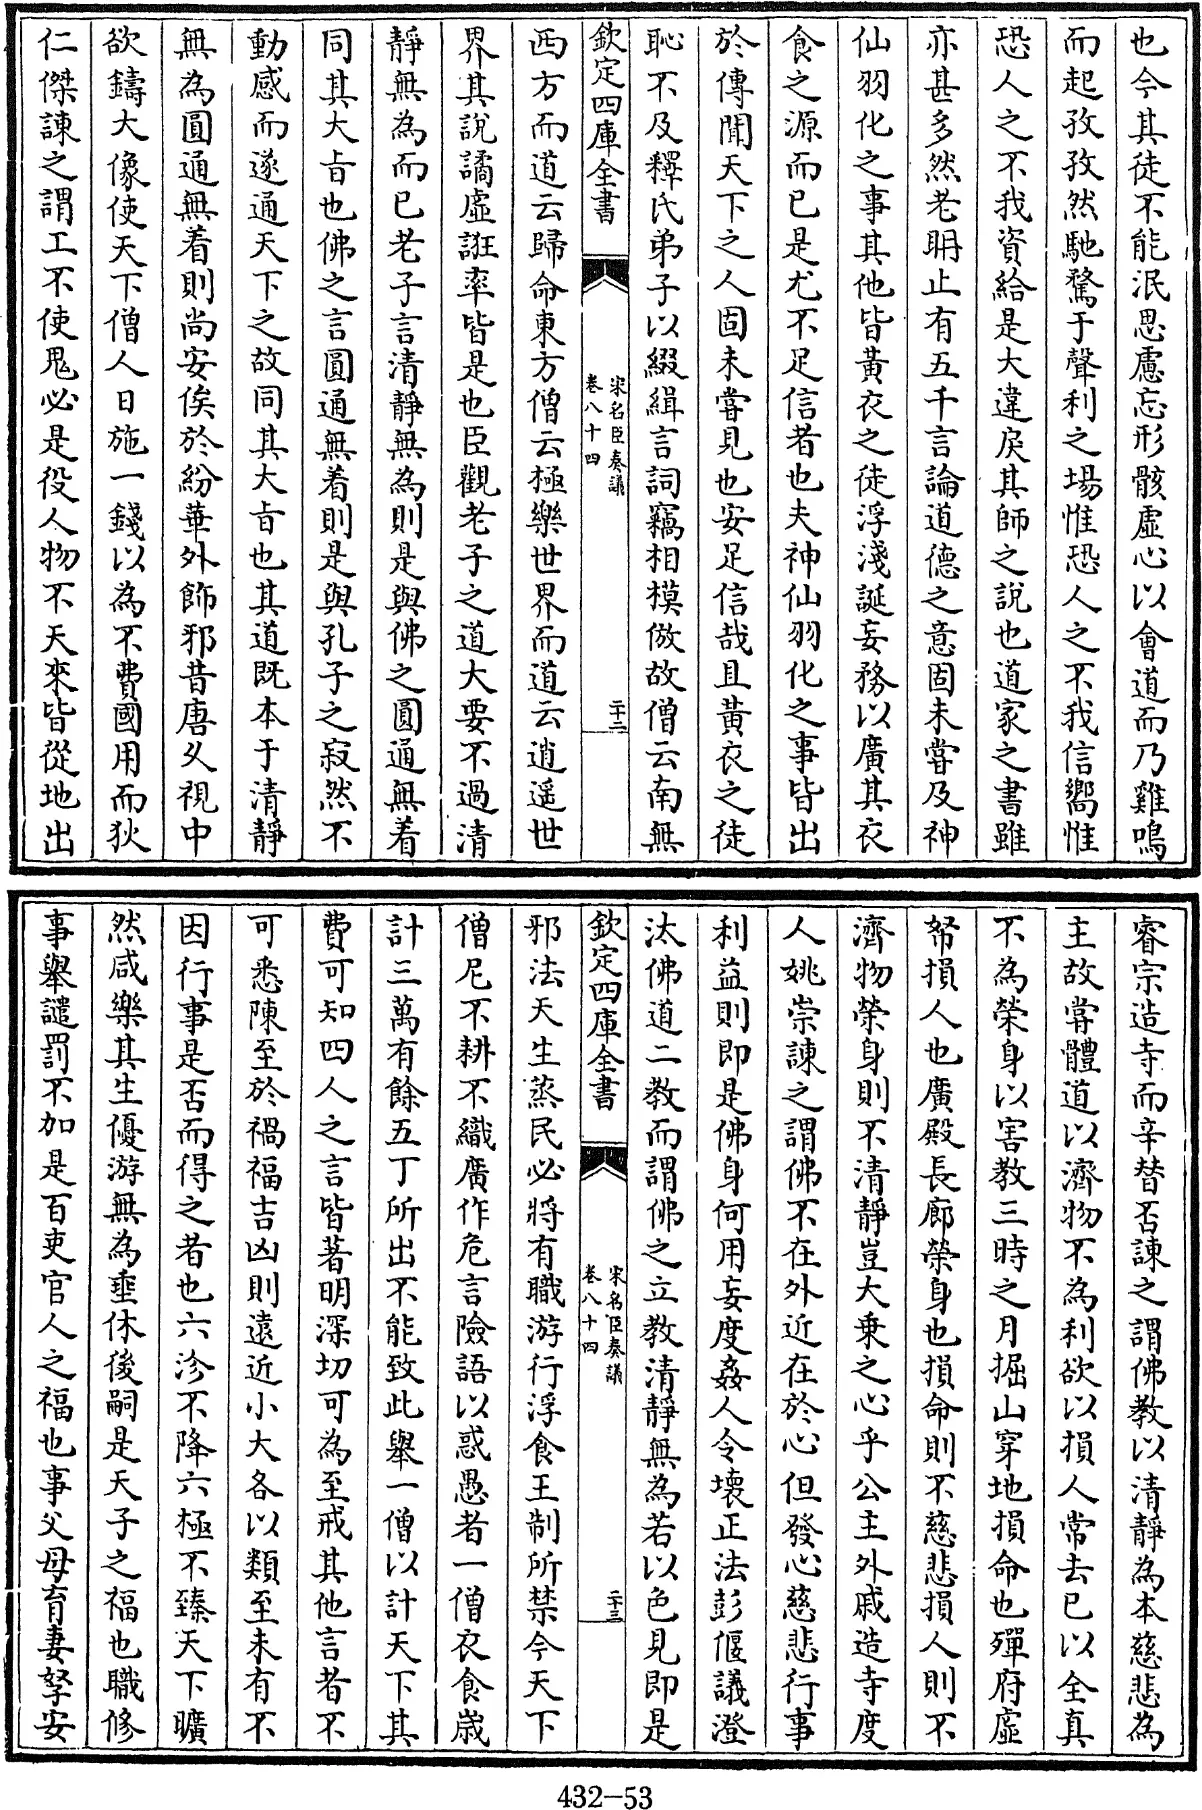 也今其徒不能泯思慮忘形骸虛心以會道而乃雞鳴
而起孜孜然馳騖于聲利之場惟恐人之不我信嚮惟
恐人之不我資給是大違戾其師之說也道家之書雖
亦甚多然老𣆀止有五千言論道德之意固未嘗及神
仙羽化之事其他皆黃衣之徒浮淺誕妄務以廣其衣
食之源而已是尤不足信者也夫神仙羽化之事皆出
於傳聞天下之人固未嘗見也安足信哉且黃衣之徒
恥不及釋氏弟子以綴緝言詞竊相模倣故僧云南無
欽定四庫全書
宋名臣奏議
卷八十四
二十二
西方而道云歸命東方僧云極樂世界而道云逍遥世
界其說譎虛誑率皆是也臣觀老子之道大要不過清
靜無為而已老子言清靜無為則是與佛之圓通無着
同其大㫖也佛之言圓通無着則是與孔子之寂然不
動感而遂通天下之故同其大㫖也其道既本于清靜
無為圓通無着則尚安俟於紛華外飾邪昔唐乆視中
欲鑄大像使天下僧人日施一錢以為不費國用而狄
仁傑諫之謂工不使鬼必是役人物不天來皆從地出
睿宗造寺而辛替否諫之謂佛教以清靜為本慈悲為
主故嘗體道以濟物不為利欲以損人常去已以全真
不為榮身以害教三時之月掘山穿地損命也殫府虛
帑損人也廣殿長廊榮身也損命則不慈悲損人則不
濟物榮身則不清靜豈大乗之心乎公主外戚造寺度
人姚崇諫之謂佛不在外近在於心但發心慈悲行事
利益則即是佛身何用妄度姦人令壞正法彭偃議澄
汰佛道二教而謂佛之立教清靜無為若以色見即是
欽定四庫全書
宋名臣奏議
卷八十四
二十三
邪法天生蒸民必將有職游行浮食王制所禁今天下
僧尼不耕不織廣作危言險語以惑愚者一僧衣食嵗
計三萬有餘五丁所出不能致此舉一僧以計天下其
費可知四人之言皆著明深切可為至戒其他言者不
可悉陳至於禍福吉凶則遠近小大各以類至未有不
因行事是否而得之者也六沴不降六極不臻天下曠
然咸樂其生優游無為垂休後嗣是天子之福也職修
事舉譴罰不加是百吏官人之福也事父母育妻孥安
432-53